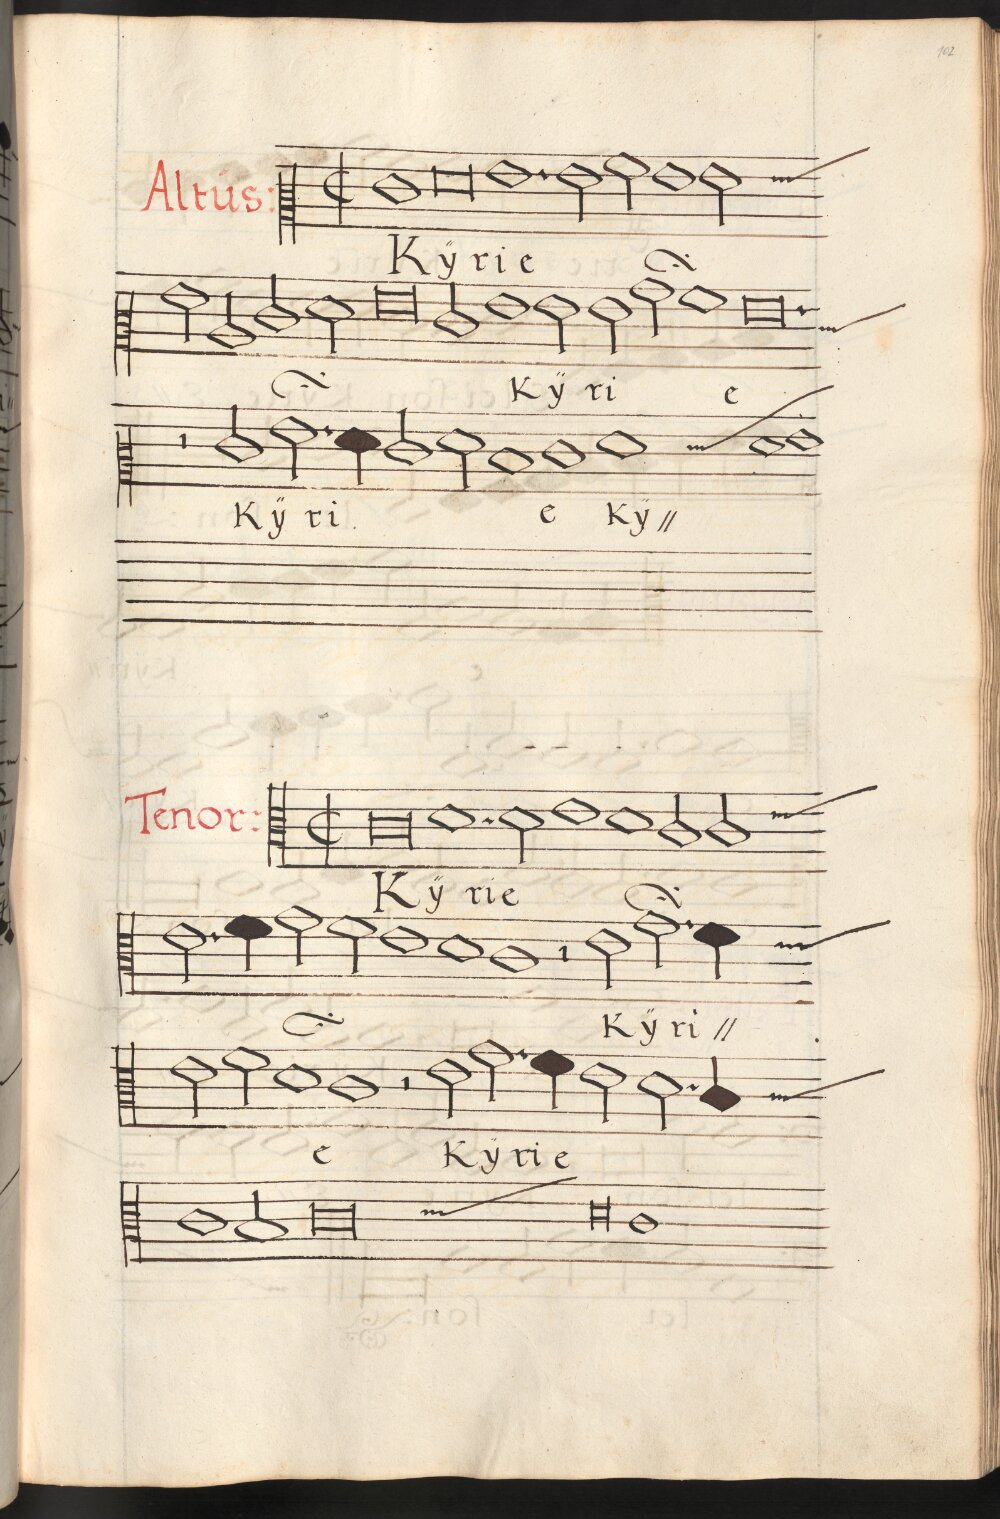 102
Altus:
Kÿrie
Kÿri e
Kÿri. e Kÿ//
Tenor:
Kÿ rie
Kÿri//
e Kÿrie